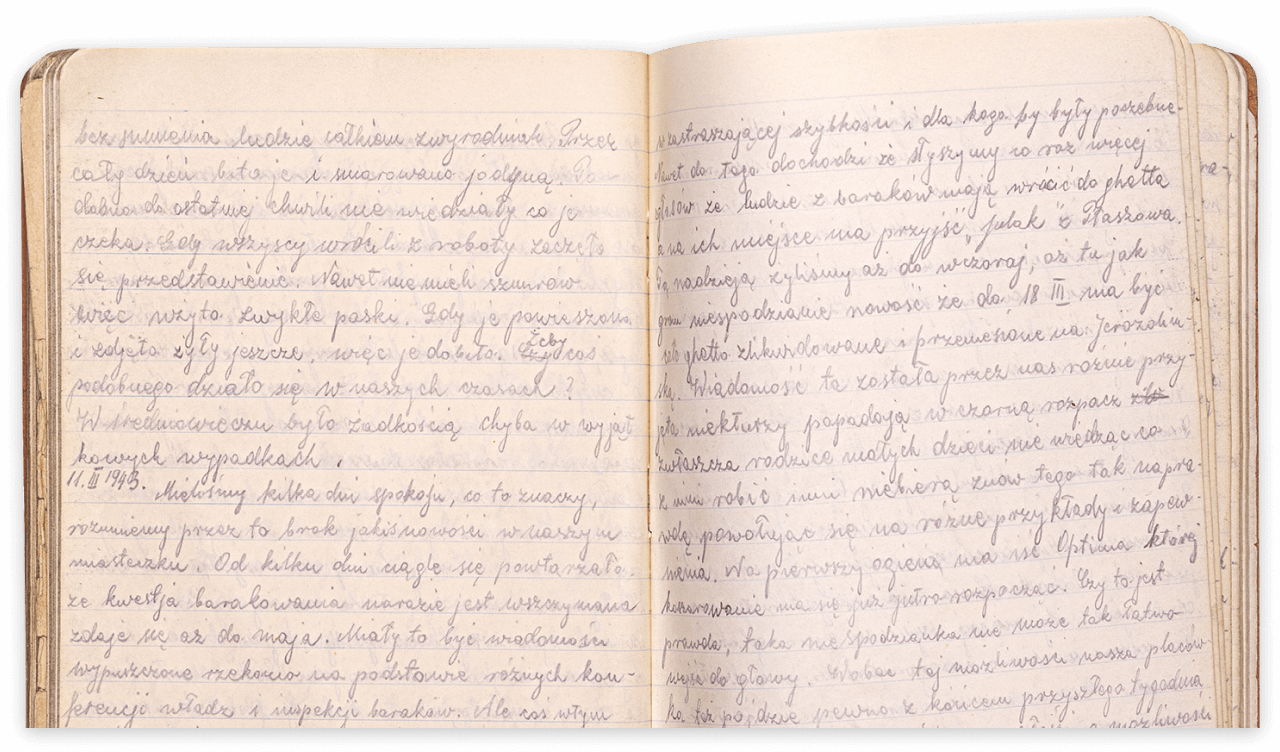 bez sumienia ludzie całkiem zwyrodniali. Przez
cały dzień bito je i smarowano jodyną. Po
dobno do ostatniej chwili nie wiedziały co je
czeka. Gdy wszyscy wrócili z roboty zaczęło
się przedstawienie. Nawet nie mieli sznurów
więc użyto zwykłe paski. Gdy je powieszono
i zdjęto żyły jeszcze, więc je dobito. Żeby coś
podobnego działo się w naszych czasach?
W średniowieczu było żadkością chyba w wyjąt
kowych wypadkach.
11. III 1943. Mieliśmy kilka dni spokoju, co to znaczy,
rozumiemy przez to brak jakiś nowości w naszym
miasteczku. Od kilku dni ciągle się powtarzało
że kwestja barakowania narazie jest wszczymana
zdaje się aż do maja. Miały to być wiadomości
wypuszczone rzekomo na podstawie różnych kon-
ferencji władz i inspekcji baraków. Ale coś w tym
w zastraszającej szybkości i dla kogo by były poszebne.
Nawet do tego dochodzi że słyszymy co raz więcej
głosów że ludzie z baraków mają wrócić do ghetta
a na ich miejsce ma przyjść „Julak" z Płaszowa.
Tą nadzieją żyliśmy aż do wczoraj, aż tu jak
grom niespodzianie nowość że do 18 III ma być
całe ghetto zlikwidowane i przeniesione na Jerozolim-
ską. Wiadomość ta została przez nas różnie przy-
jęta niekturzy popadają w czarną rozpacz
zwłaszcza rodzice małych dzieci nie wiedząc co
z nimi robić inni niebierą znów tego tak napra-
wdę powołując się na różne przykłady i zapew-
nienia. Na pierwszy ogień ma iść Optima której
koszarowanie ma się już jutro rozpocząć. Czy to jest
prawda, taka niespodzianka nie może tak łatwo
wejść do głowy. Wobec tej możliwości nasza placów-
ka też pójdzie pewno z końcem przyszłego tygodnia
możliwości